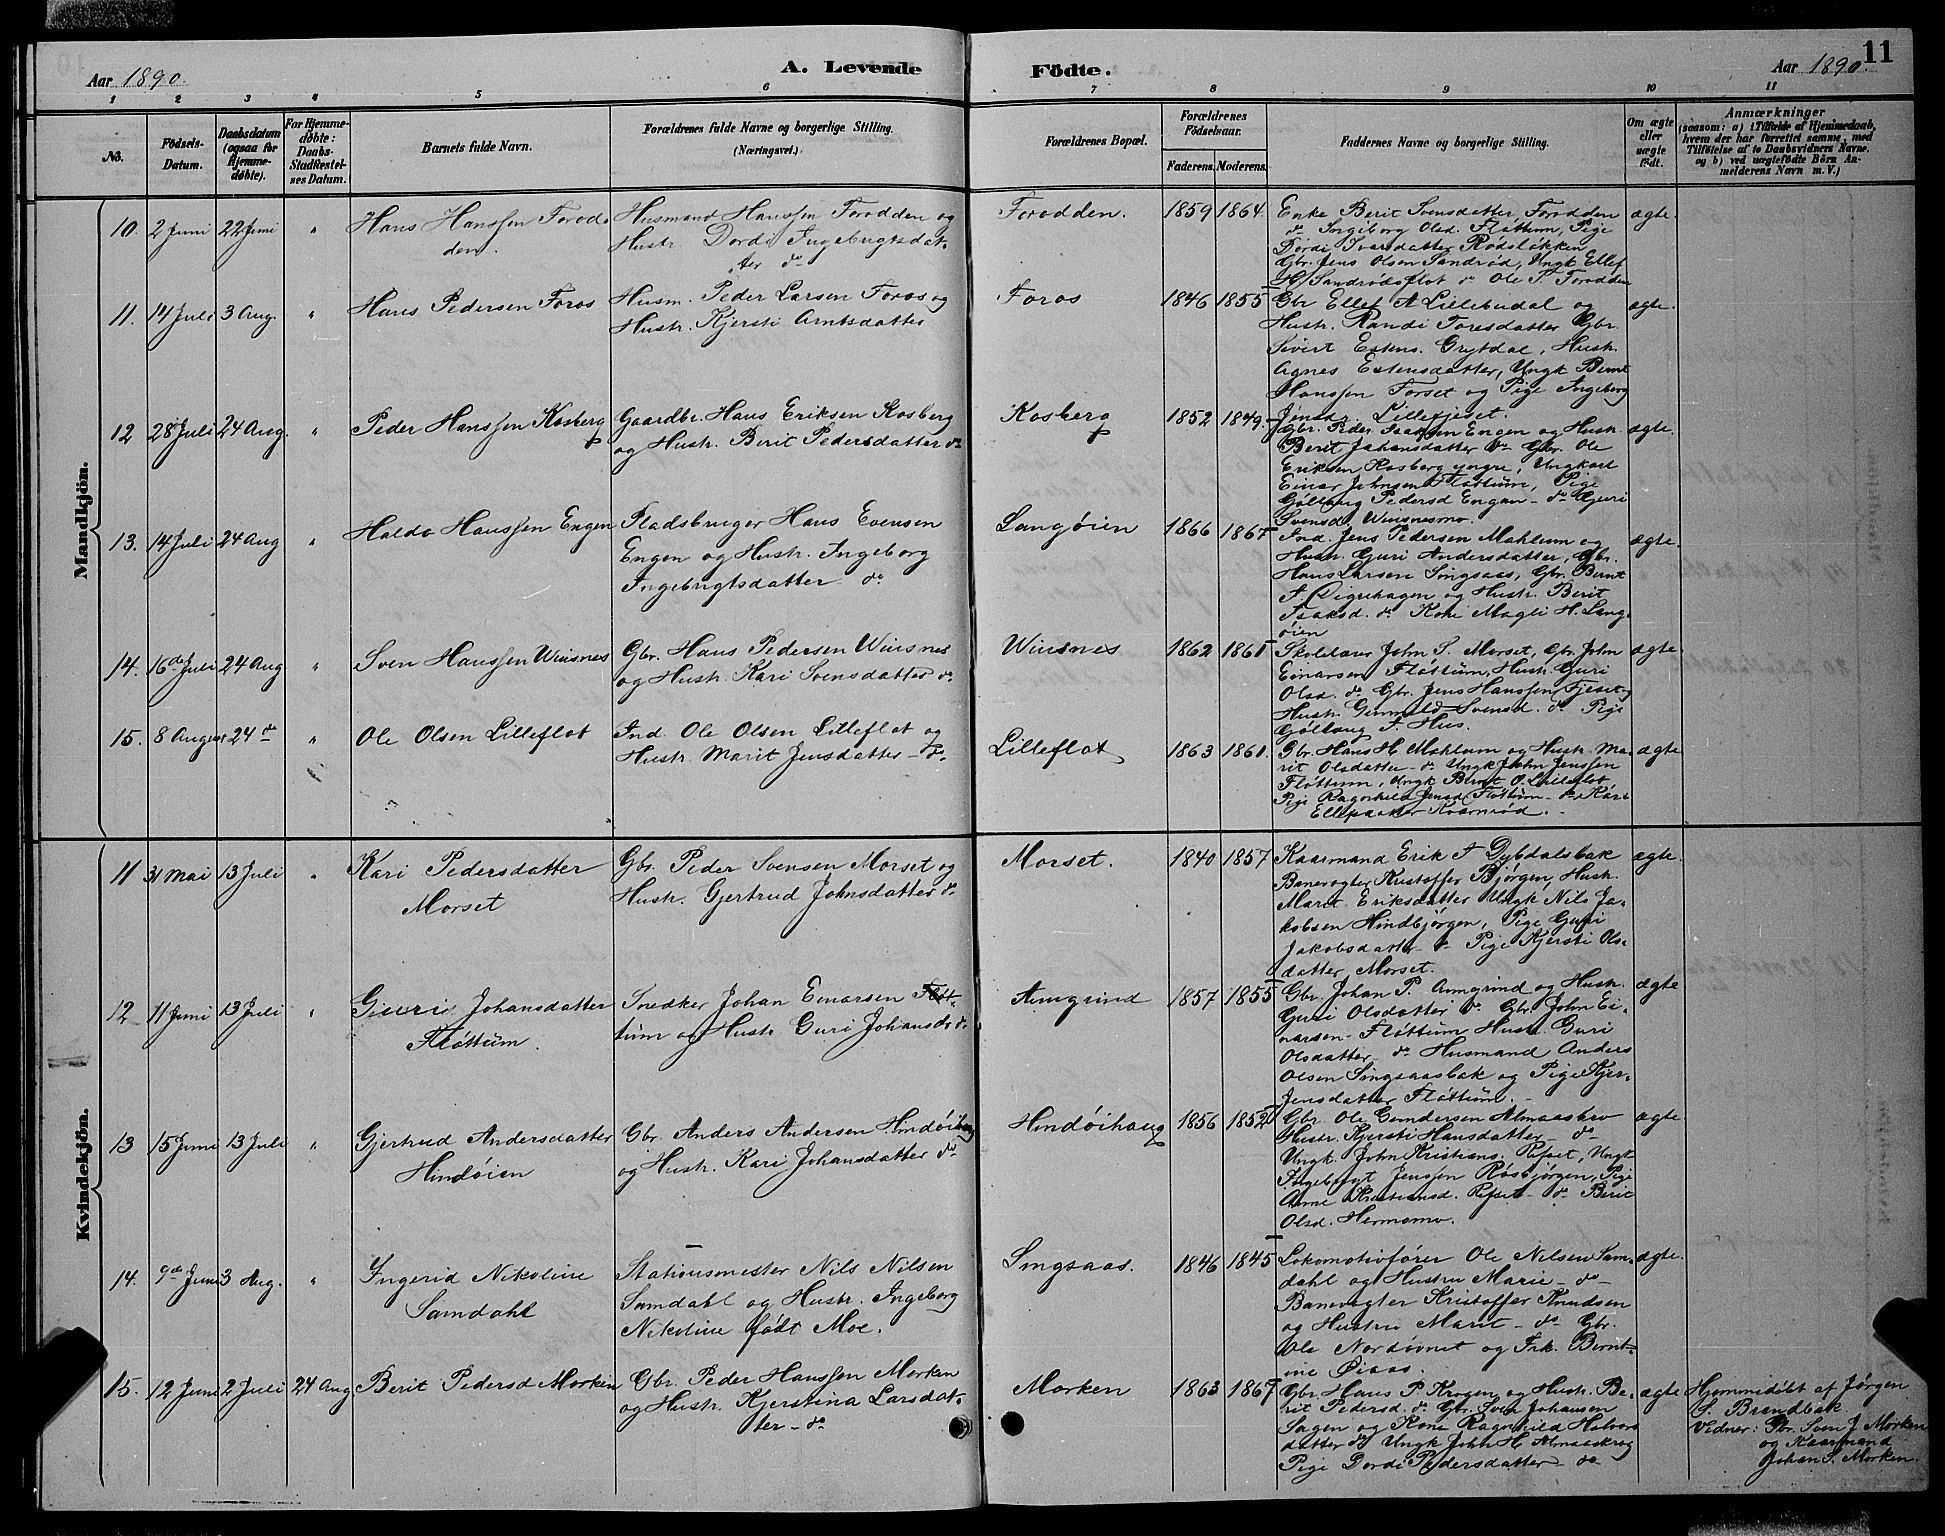 11
Aar 1890.
A. Levende
Födte.
Aar 1890.
1 2 3 4 5 6 7 8 9 10 11
No.
Födsels-
Datum.
Daabsdatum
(ogsaa for
Hjemme-
døbte).
For Hjemme-
døbte:
Daabs-
Stadfæstel-
ses Datum.
Barnets fulde Navn.
Forældrenes fulde Navne og borgerlige Stilling.
(Næringsvei.)
Forældrenes Bopæl.
Forældrenes
Födselsaar.
Faderens. Moderens.
Faddernes Navne og borgerlige Stilling.
Om ægte
eller
uægte
født.
Anmærkninger
(saasom: a) i Tilfælde af Hjemmedaab,
hvem der har forrettet samme, med
Tilføielse af to Daabsvidners Navne,
og b) ved uægtefødte Börn An-
melderens Navn m. V.)
Mandkjön.
10. 2 Juni 22 Juni "
Hans Hanssen Forod-
den.
Husmand Hanssen Forodden og
Hustr. Dordi Ingebrigtsdat-
ter do
Forodden.
1859 1864.
Enke Berit Svensdatter, Forodden
do Ingiborg Olsd. Fløttum, Pige
Dordi Ivarsdatter Rødsløkken
Gbr. Jens Olsen Sandrød, Ungk Ellef
H. Sandrødsflot do Ole P. Forodden
ægte.
11. 14 Juli 3 Aug. "
Hans Pedersen Foros
Husm. Peder Larsen Foros og
Hustr. Kjersti Arntsdatter
Foros
1846 1855
Gbr Ellef A Lillebudal og
Hustr. Randi Toresdatter Gbr.
Sivert Estens. Grytdal, Hustr.
Agnes Estensdatter, Ungk Bernt
Hanssen Forset og Pige Ingeborg
Jensdr. Lillefjeset.
ægte.
12 28 Juli 24 Aug. "
Peder Hanssen Kosberg
Gaardbr. Hans Eriksen Kosberg
og Hustr. Berit Pedersdatter do
Kosberg
1852 1849.
Gbr. Peder Isaksen Engen og Hustr.
Berit Johansdatter do Gbr. Ole
Eriksen Kosberg yngre, Ungkarl
Einar Johnsen Fløttum, Pige
Gøllaug Pedersd Engan - do Guri
Svensd. Winsnesmo.
ægte.
13. 14 Juli 24 Aug "
Haldo Hanssen Engen
Pladsbruger Hans Evensen
Engen og Hustr. Ingeborg
Ingebrigtsdatter do
Langøien
1866 1867
Ind. Jens Pedersen Mahlum og
Hustr. Guri Andersdatter, Gbr.
Hans Larsen Singsaas, Gbr. Bernt
og Hustr. Berit
Isaksd. do Kone Magli H. Lang-
øien
ægte.
14. 16de Juli 24 Aug "
Sven Hanssen Winsnes
Gbr. Hans Pedersen Winsnes
og Hustr. Kari Svensdatter do
Winsnes
1862 1861
Skolelærer John S. Morset, Gbr. John
Einarsen Fløttum, Hustr. Guri
Olsd. do Gbr. Jens Hanssen Fjeset og
Hustr. Gunnild Svensd. do Pige
Gøllaug A. Hus.
ægte.
15. 8 August 24 do "
Ole Olsen Lilleflot
Ind Ole Olsen Lilleflot og
Hustr. Marit Jensdatter - do
Lilleflot
1863 1861.
Gbr. Hans H. Mahlum og Hustr. Ma-
rit Olsdatter - do Ungk John Jenssen
Fløttum, Ungk Bernt O. Lilleflot
Pige Ragnhild Jensd. Fløttum - do Kari
Ellefsdatter Kvernrød.
ægte
Kvindekjön.
11 31 Mai 13 Juli "
Kari Pedersdatter
Morset
Gbr. Peder Svensen Morset og
Hustr. Gjertrud Johnsdatter do
Morset.
1840 1857
Kaarmand Erik A Dybdalsbak
Banevogter Kristoffer Bjørgen, Hustr.
Marit Eriksdatter Ungk Nils Ja-
kobsen Hindbjørgen, Pige Guri
Jakobsdatter - do Pige Kjersti Ols-
datter Morset.
ægte.
12 11 Juni 13 Juli "
Gjuri Johansdatter
Fløttum.
Snedker Johan Einarsen Fløt-
tum og Hustr Guri Johansdr. do
Armgrind
1857 1855
Gbr. Johan P. Armgrind og Hustr.
Guri Olsdatter do Gbr. John Ei-
narsen Fløttum Hustr. Guri
Olsdatter - do Husmand Anders
Olsen Singsaasbak og Pige Kjer-
Jensdatter Fløttum. -
ægte
13 15 Juni 13 Juli "
Gjertrud Andersdatter
Hindøien
Gbr Anders Andersen Hindøihaug
og Hustr. Kari Johansdatter do
Hindøihaug
1856 1852
Gbr. Ole Gundersen Almaasbro
Hustr. Kjersti Hansdatter - do -
Ungk. John Kristians. Refset, Ungk
Ingebrigt Jenssen Røsbjørgen, Pige
Anne Kristiansd. Refset - do Berit
Olsd. Hermomo.
ægte
14. 9de Juni 3 Aug. "
Ingerid Nikoline
Samdahl
Stationsmester Nils Nilsen
Samdahl og Hustr. Ingeborg
Nikoline født Moe.
Singsaas.
1846 1845
Lokomotivfører Ole Nilsen Sam-
dahl og Hustru Marie - do -
Banevogter Kristoffer Knudsen
og Hustru Marit - do Gbr.
Ole Nordøvret og Frk. Bernt-
ine Øiaas.
ægte.
15. 12 Juni 2 Juli 24 Aug
Berit Pedersd Morken
Gbr. Peder Hanssen Morken
og Hustr. Kjerstina Larsdat-
ter - do
Morken
1863 1867
Gbr. Hans P. Krogen og Hustr. Be-
rit Pedersd. do Gbr. Sven Johansen
Sagen og Kone Ragnhild Halvors
datter do Ungk John H. Almaaskrog
Pige Dordi Pedersdatter do
ægte
Hjemmedøbt af Jørgen
S. Brandbak
Vidner: Gbr. Sven J Morken
og Kaarmand
Johan S. Morken.